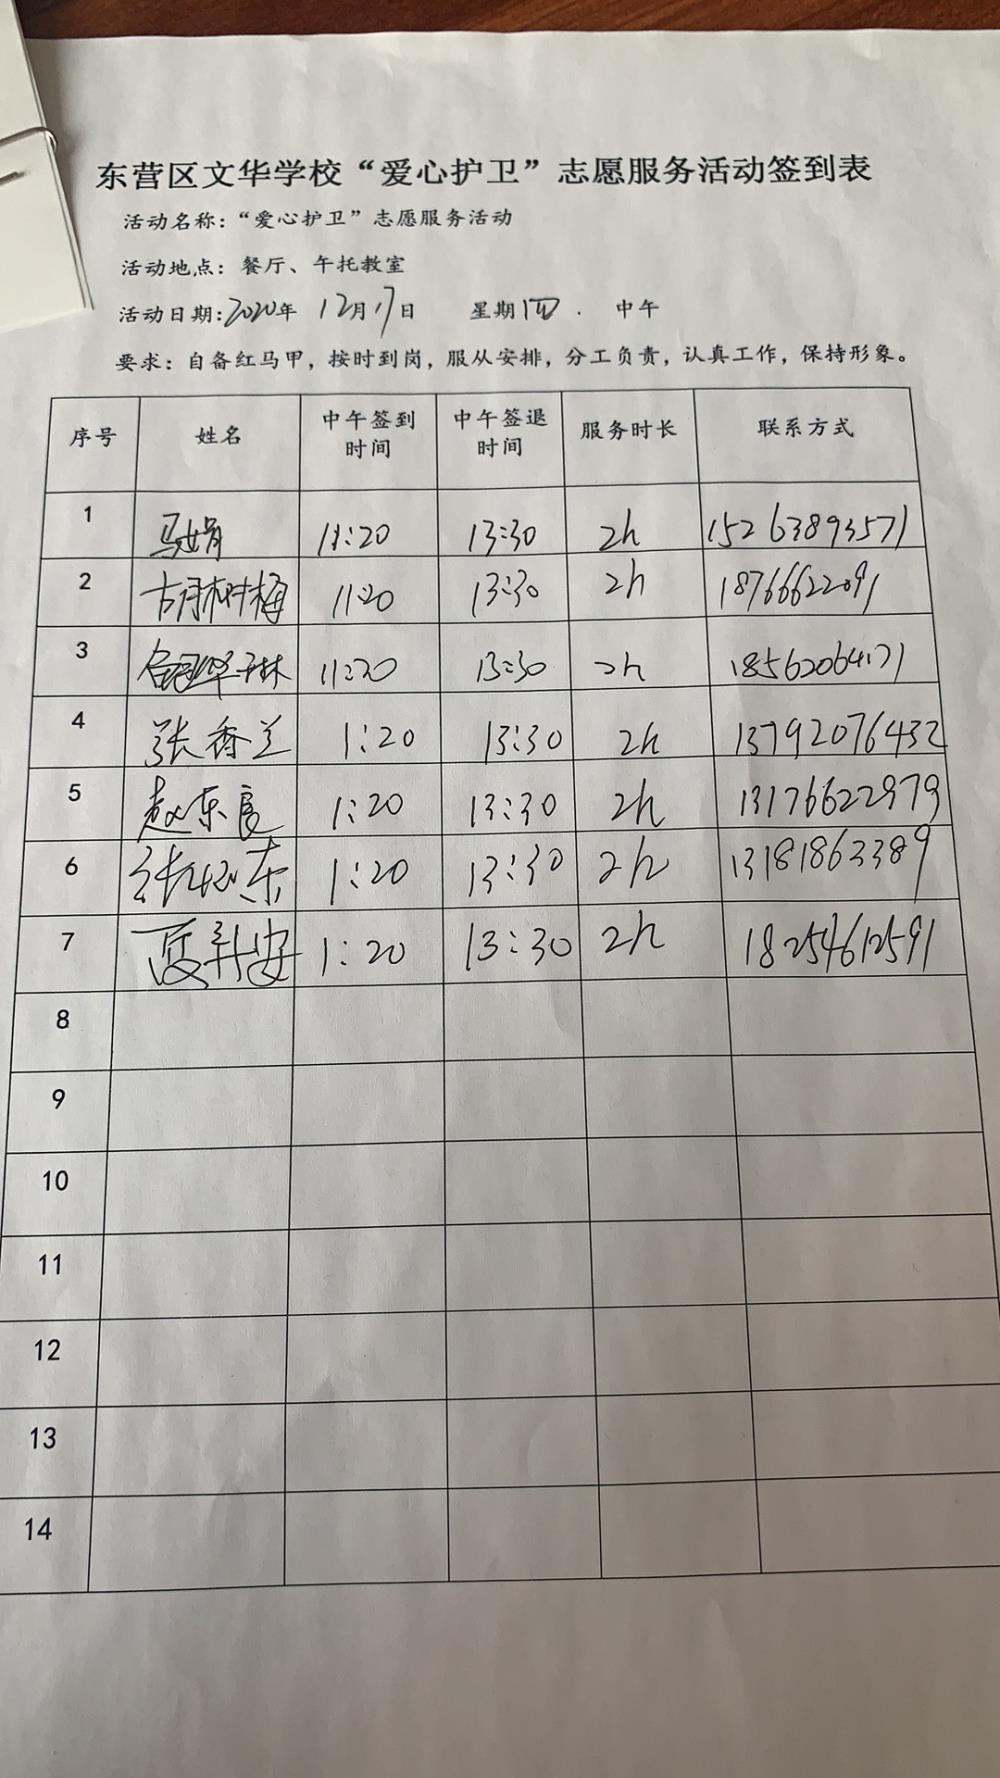 东营区文华学校“爱心护卫”志愿服务活动签到表
活动名称：“爱心护卫”志愿服务活动
活动地点：餐厅、午托教室
活动日期：2020年 12月17日 星期四. 中午
要求：自备红马甲，按时到岗，服从安排，分工负责，认真工作，保持形象。
序号 姓名 中午签到时间 中午签退时间 服务时长 联系方式
1 马娟 11:20 13:30 2h 15263893571
2 胡树梅 11:20 13:30 2h 18766622091
3 11:20 13:30 2h 18562064171
4 张香兰 1:20 13:30 2h 13792076432
5 赵东良 1:20 13:30 2h 13176622979
6 1:20 13:30 2h 13181863389
7 1:20 13:30 2h 18254612591
8
9
10
11
12
13
14